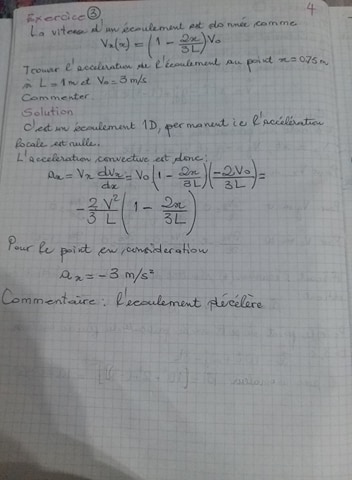 4
Exercice ③
La vitesse d'un écoulement est donnée comme
Vx(x) = (1 - 2x/3L) V₀
Trouver l'accélération de l'écoulement au point x = 0,75 m
si L = 1 m et V₀ = 3 m/s
Commenter.
Solution
C'est un écoulement 1D, permanent i.e l'accélération
locale est nulle.
L'accélération convective est donc:
ax = Vx dVx/dx = V₀ (1 - 2x/3L)(-2V₀/3L) =
-2/3 V²/L (1 - 2x/3L)
Pour le point en considération
ax = -3 m/s²
Commentaire: l'écoulement décélère